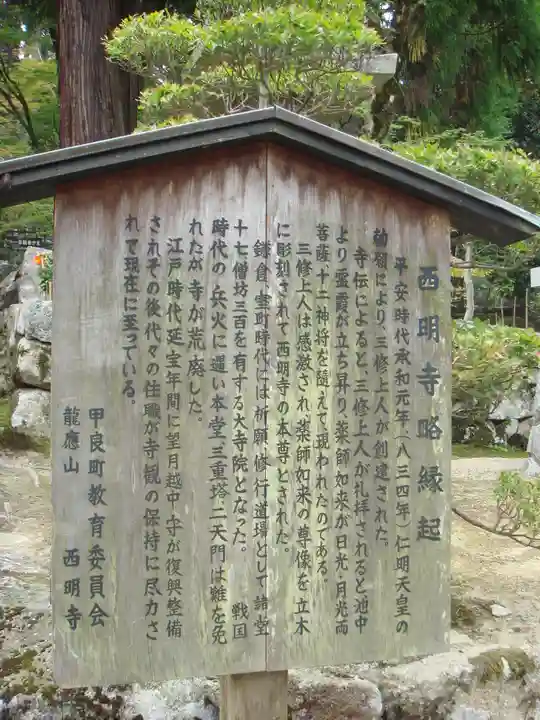 西明寺略縁起
平安時代承和元年(八三四年)仁明天皇の
勅願により、三修上人が創建された。
寺伝によると、三修上人が礼拝されると池中
より霊霞が立ち昇り、薬師如来が日光・月光両
菩薩十二神将を随えて現われたのである。
三修上人は感激され、薬師如来の尊像を立木
に彫刻されて西明寺の本尊とされた。
鎌倉、室町時代には祈願、修行道場として諸堂
十七僧坊三百を有する大寺院となった。 戦国
時代の兵火に遭い本堂、三重塔、二天門は難を免
れたが寺が荒廃した。
江戸時代延宝年間に望月越中守が復興整備
されその後代々の住職が寺観の保持に尽力さ
れて現在に至っている。
甲良町教育委員会
龍應山 西明寺